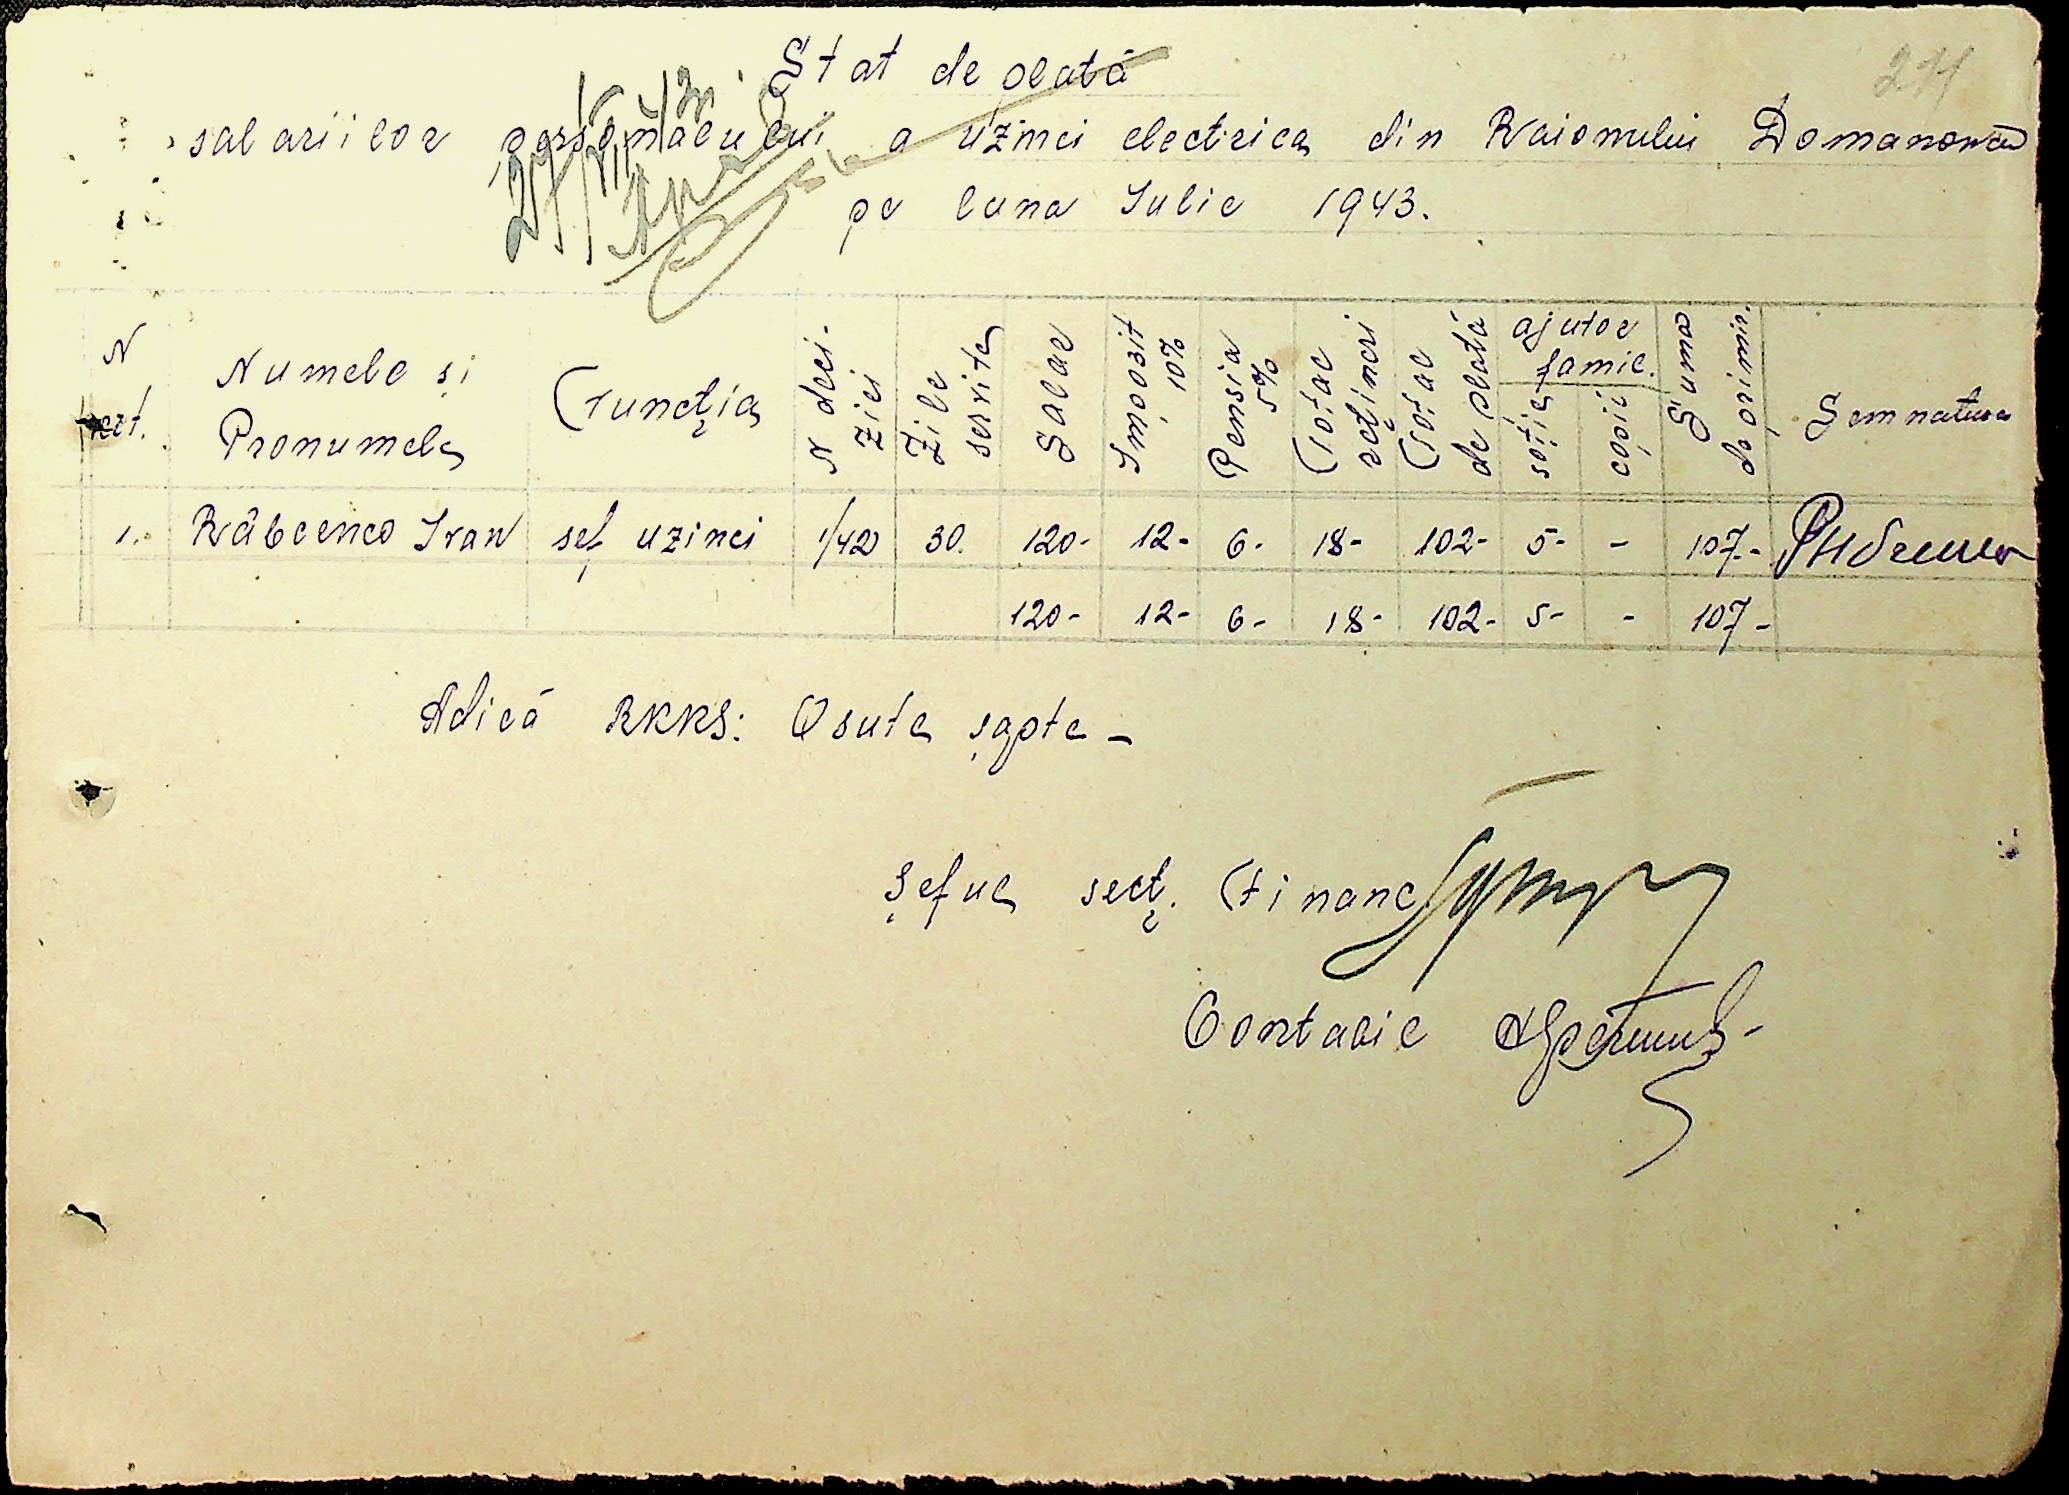 271
Stat de plată
salariilor personalului a uzinei electrica din Raionului Domanowca
pe luna Iulie 1943.
27/VII 43
N crt. Numele și Pronumele Funcția N decizici Zile servite Salar Impozit 10% Pensia 5% Total rețineri Total de plată ajutor famil. soție copii Suma de primir. Semnatura
1. Râbcenco Ivan șef uzinei 1/42 30. 120- 12- 6- 18- 102- 5- - 107-
120- 12- 6- 18- 102- 5- - 107-
Adică RKKS: Osute șapte -
Șeful secț. Financ.
Contabil